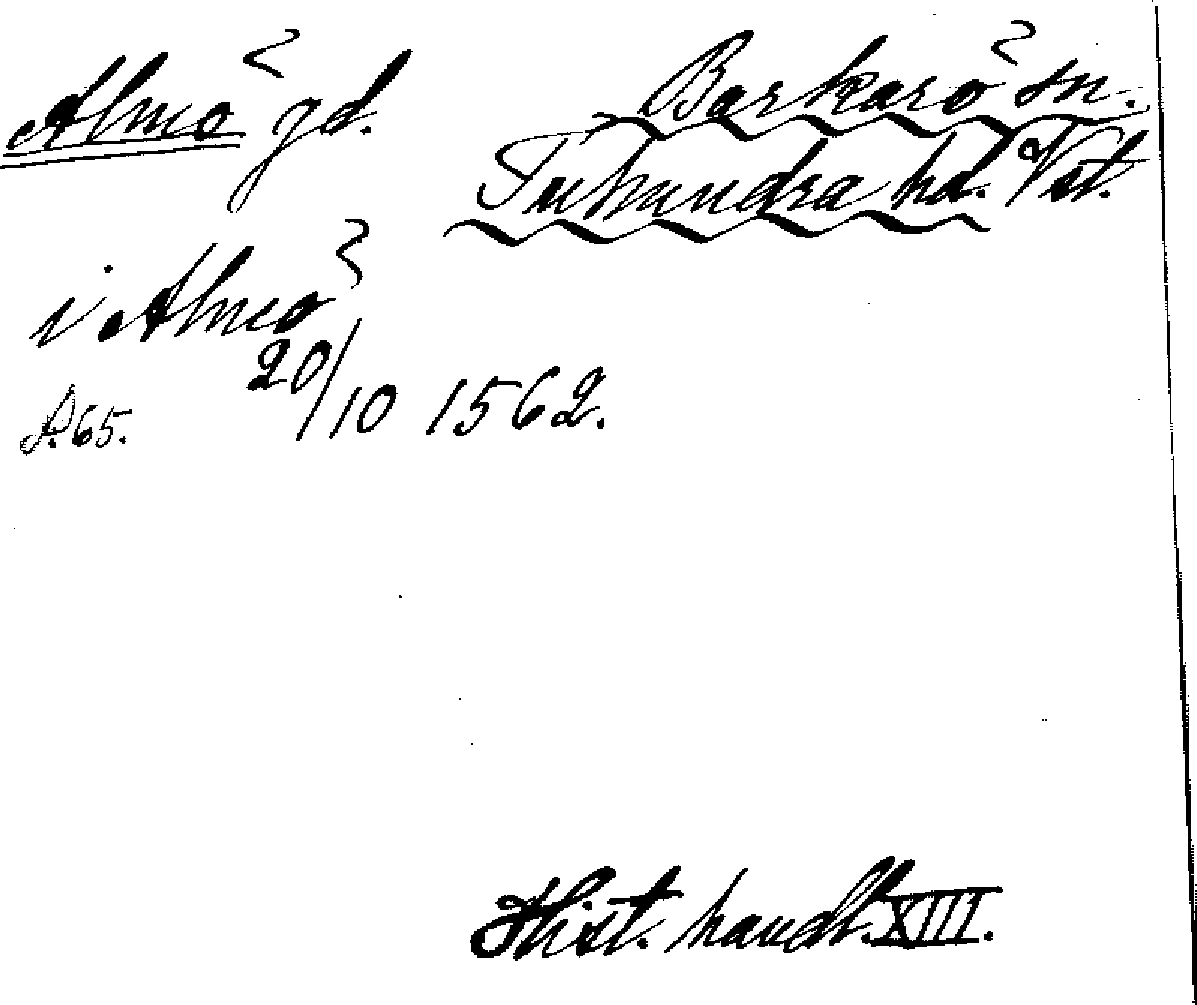 Almö gd. Barkarö sn.
Tuhundra hd. Vst.
i Almö
20/10 1562.
S. 65.
Hist. handl. XIII.